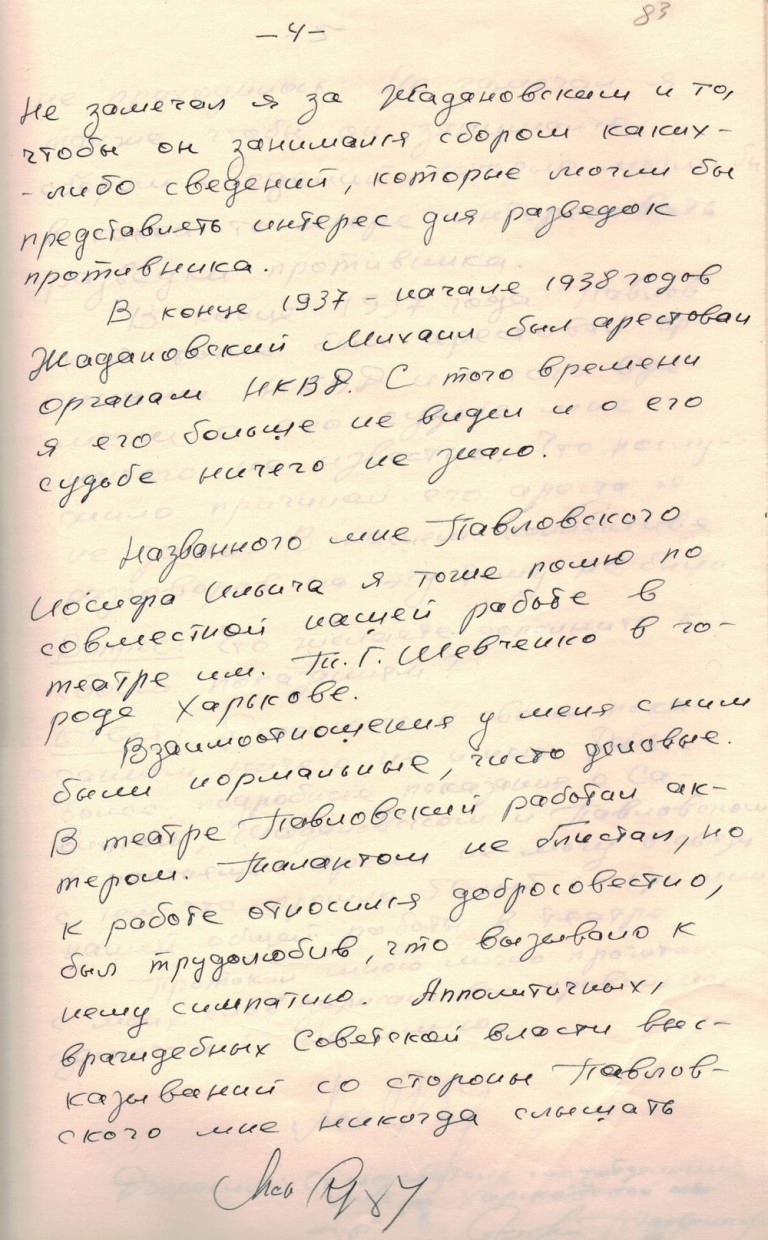 83
-4-
Не замечал я за Жадановским и то,
чтобы он занимался сбором каких-
-либо сведений, которые могли бы
представлять интерес для разведок
противника.
В конце 1937 - начале 1938 годов
Жадановский Михаил был арестован
органам НКВД. С того времени
я его больше не видел и о его
судьбе ничего не знаю.
Названного мне Павловского
Иосифа Ильича я тоже помню по
совместной нашей работе в
театре им. Т.Г. Шевченко в го-
роде Харькове.
Взаимоотношения у меня с ним
были нормальные, чисто деловые.
В театре Павловский работал ак-
тером. Талантом не блистал, но
к работе относился добросовестно,
был трудолюбив, что вызывало к
нему симпатию. Апполитичных,
враждебных Советской власти выс-
казываний со стороны Павлов-
ского мне никогда слышать